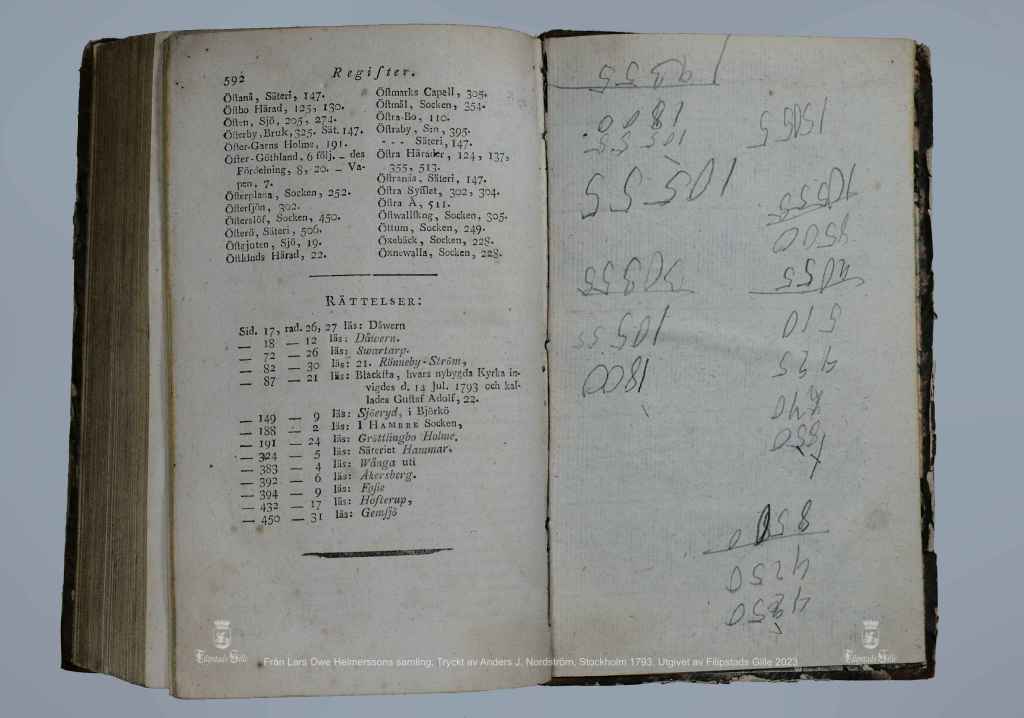 592
Regiſter.
Öſtanå, Säteri, 147.
Öſtbo Härad, 125, 130.
Öſten, Sjö, 205, 274.
Öſterby, Bruk, 325. Sät. 147.
Öſter-Garns Holme, 191.
Öſter-Göthland, 6 följ. – des
Fördelning, 8, 20. – Va-
pen, 7.
Öſterplana, Socken, 252.
Öſterſjön, 302.
Öſterslöf, Socken, 450.
Öſterö, Säteri, 506.
Öſtjuten, Sjö, 19.
Öſtkinds Härad, 22.
Öſtmarks Capell, 305.
Öſtmål, Socken, 354.
Öſtra-Bo, 110.
Öſtraby, Sn, 395.
- - - Säteri, 147.
Öſtra Härader, 124, 137,
355, 513.
Öſtranås, Säteri, 147.
Öſtra Sysſlet, 302, 304.
Öſtra Å, 511.
Öſtwallſkog, Socken, 305.
Öttum, Socken, 249.
Öxabäck, Socken, 228.
Öxnewalla, Socken, 228.
RÄTTELSER:
Sid. 17, rad. 26, 27 läs: Dåwern
— 18 — 12 läs: Dåwern.
— 72 — 26 läs: Swartarp.
— 82 — 30 läs: 21. Rönneby-Ström,
— 87 — 21 läs: Blackſta, hvars nybygda Kyrka in-
vigdes d. 14 Jul. 1793 och kal-
lades Guſtaf Adolf, 22.
— 149 — 9 läs: Sjöeryd, i Björkö
— 188 — 2 läs: I HAMBRE Socken,
— 191 — 24 läs: Gröttlingbo Holme.
— 324 — 5 läs: Säteriet Hammar.
— 383 — 4 läs: Wånga uti
— 392 — 6 läs: Åkersberg.
— 394 — 9 läs: Foſie
— 432 — 17 läs: Hofterup,
— 450 — 31 läs: Gemſjö
4250
4250
8500
550
510
8500
1800
10555
10555
1800
Filipstads Gille
Från Lars Owe Helmerssons samling, Tryckt av Anders J. Nordström, Stockholm 1793, Utgivet av Filipstads Gille 2023
Filipstads Gille